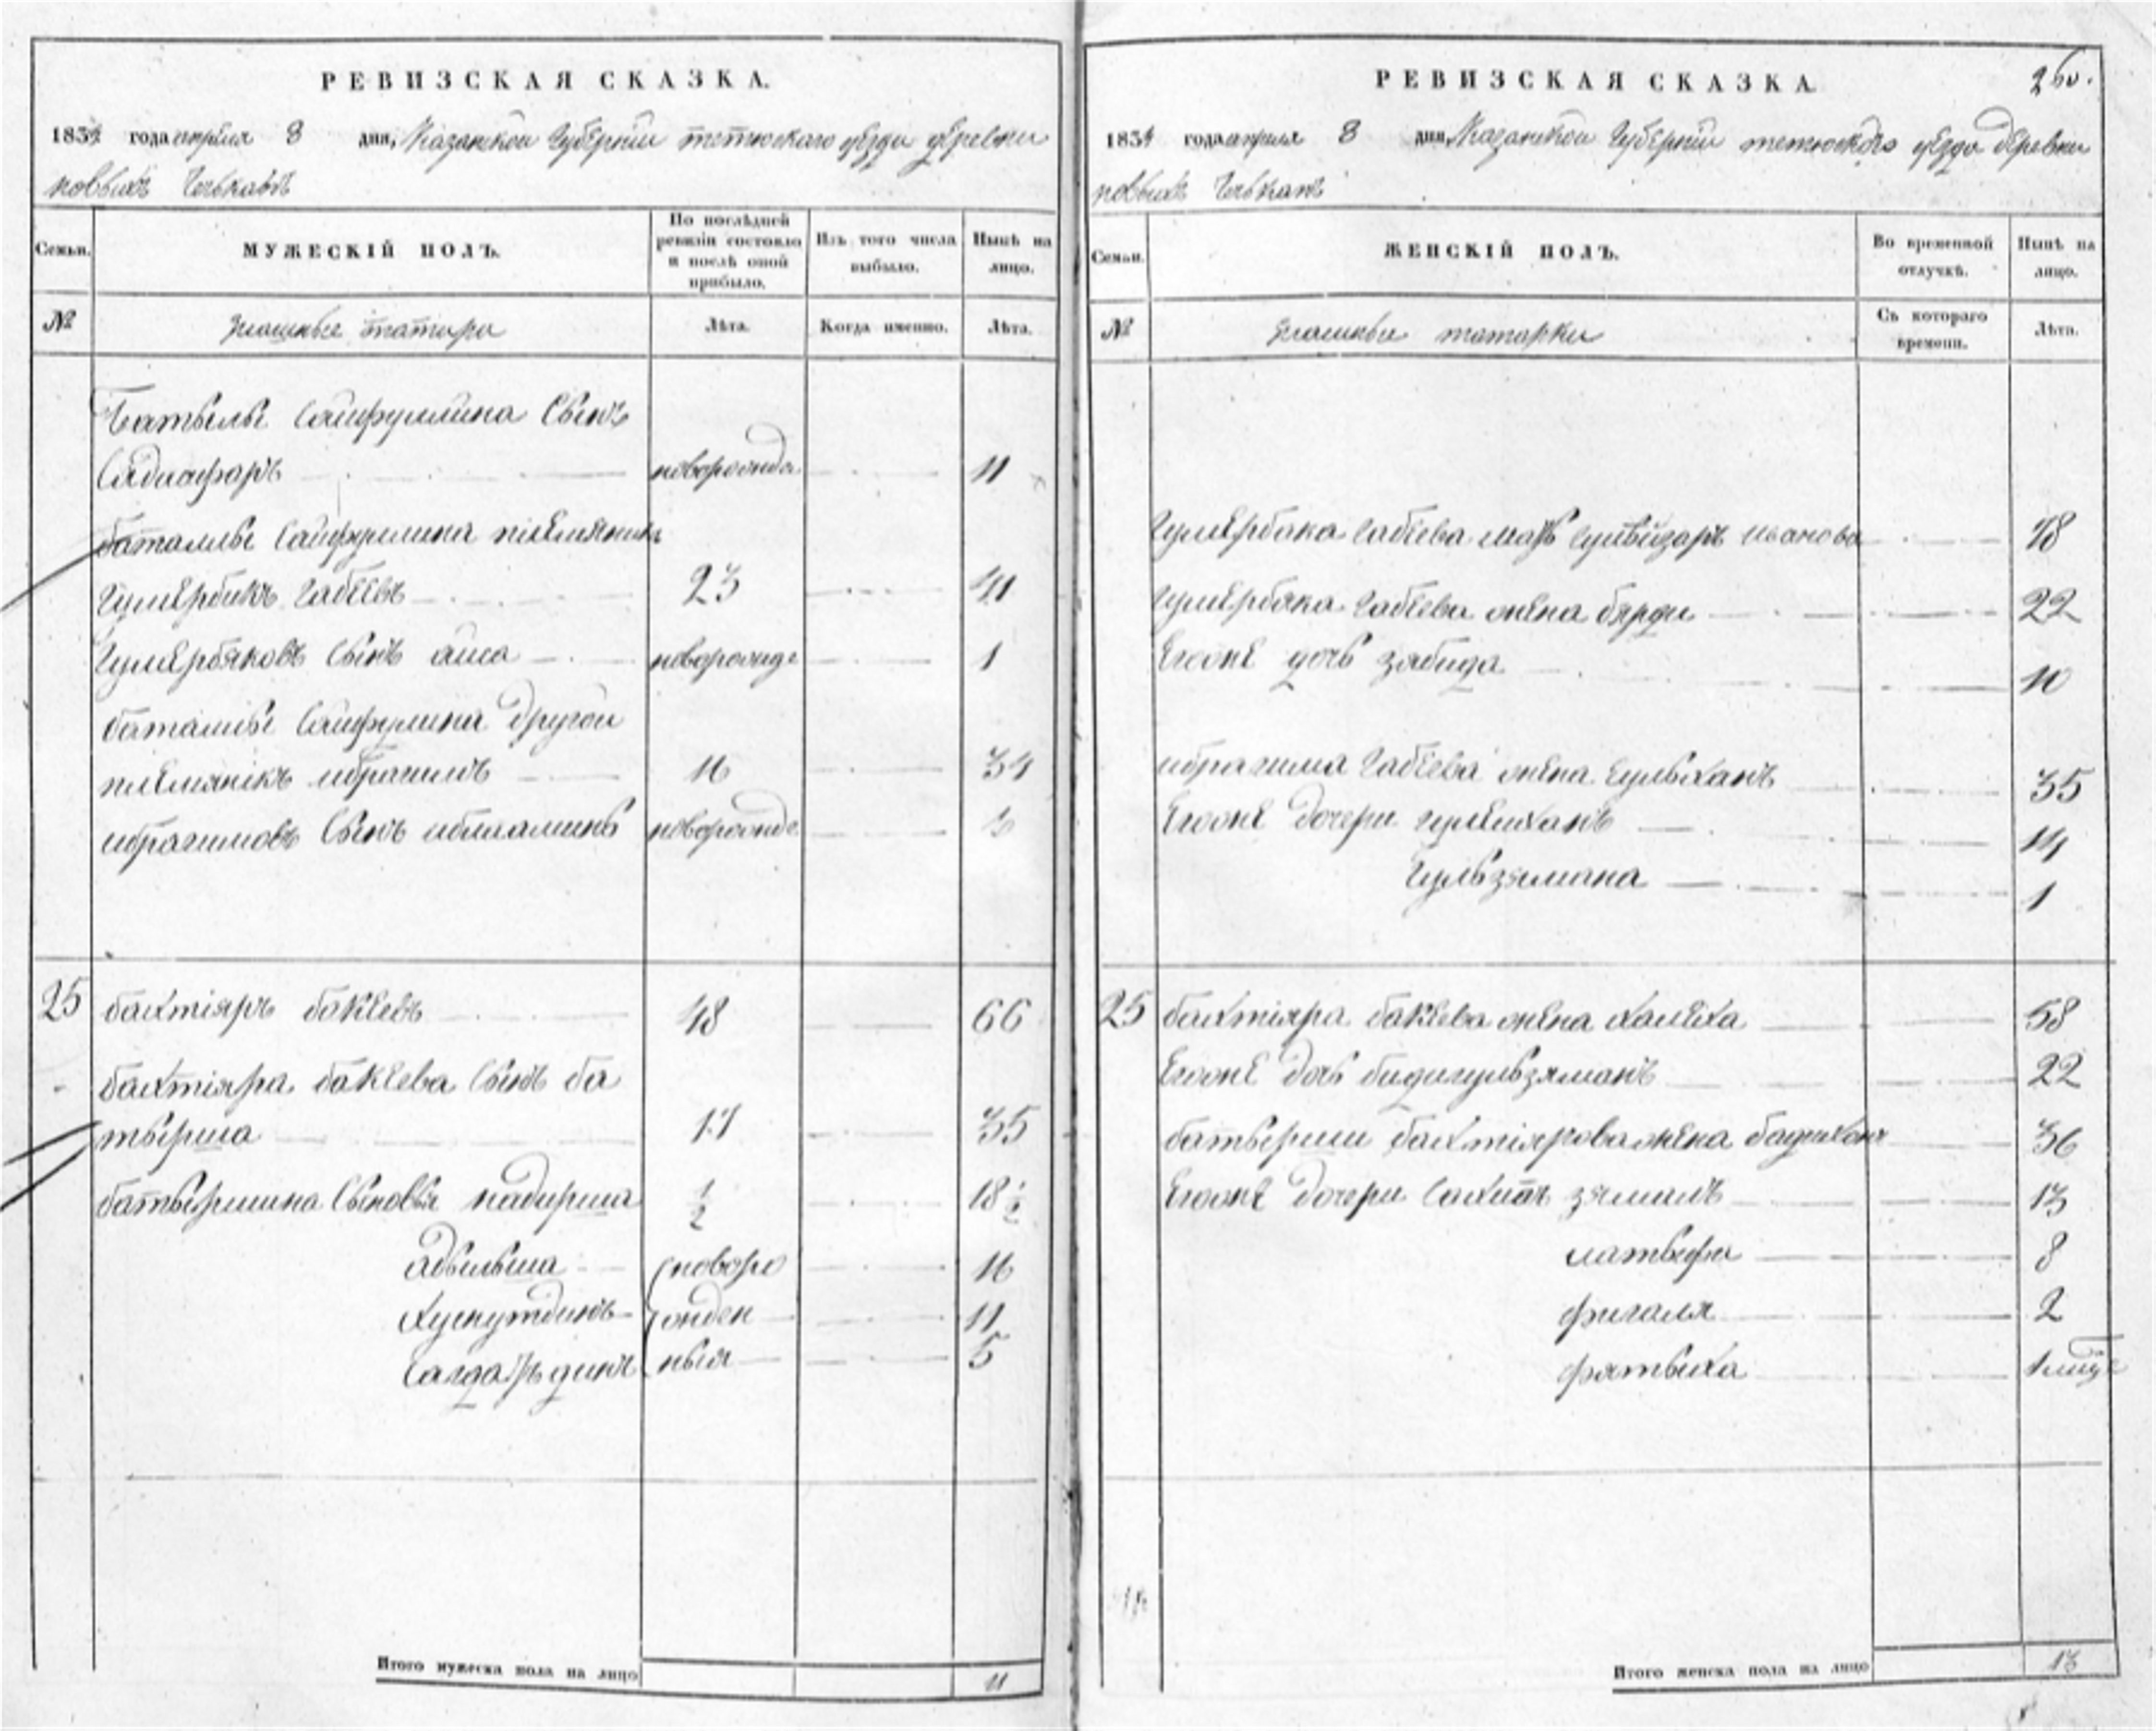 РЕВИЗСКАЯ СКАЗКА.
1834 года апреля 8 дня, Казанской Губернии тетюскаго уезда деревни
новыхъ Чечкабъ
Семьи.
МУЖЕСКІЙ ПОЛЪ.
По послѣдней ревизіи состояло и послѣ оной прибыло.
Изъ того числа выбыло.
Нынѣ на лицо.
№
татары
Лѣта.
Когда именно.
Лѣта.
Сайфуллина сынъ
новорожде 11
Сайфулина племянникъ
Гумербякъ Габеевъ 23 41
Гумербяковъ сынъ айса новорожде 1
Сайфулина другой
племяникъ ибрагимъ 16 34
ибрагимовъ сынъ новорожде
25 бахтіяръ бакеевъ 48 66
бахтіяра бакеева сынъ ба
тырша 17 35
батыршина сыновья надырша 1/2 18 1/2
адылша (новоро 16
хуснутдинъ жден 11
ныя 5
Итого мужеска пола на лицо 11
260.
РЕВИЗСКАЯ СКАЗКА.
1834 года апреля 8 дня, Казанской Губернии тетюскаго уезда деревни
новыхъ
Семьи.
ЖЕНСКІЙ ПОЛЪ.
Во временной отлучкѣ.
Нынѣ на лицо.
№
татарки
Съ котораго времени.
Лѣта.
Гумербяка Габеева мать 48
Гумербяка Габеева жена бярди 22
Егоже дочь зябида 10
ибрагима Габеева жена Гульханъ 35
Егоже дочери 14
Гульзямана 1
25 бахтіяра бакеева жена халиха 58
Егоже дочь бидигульзяманъ 22
батырши бахтіярова жена 36
Егоже дочери зямалъ 13
латыфа 8
фигаля 2
фятыха
Итого женска пола на лицо 13